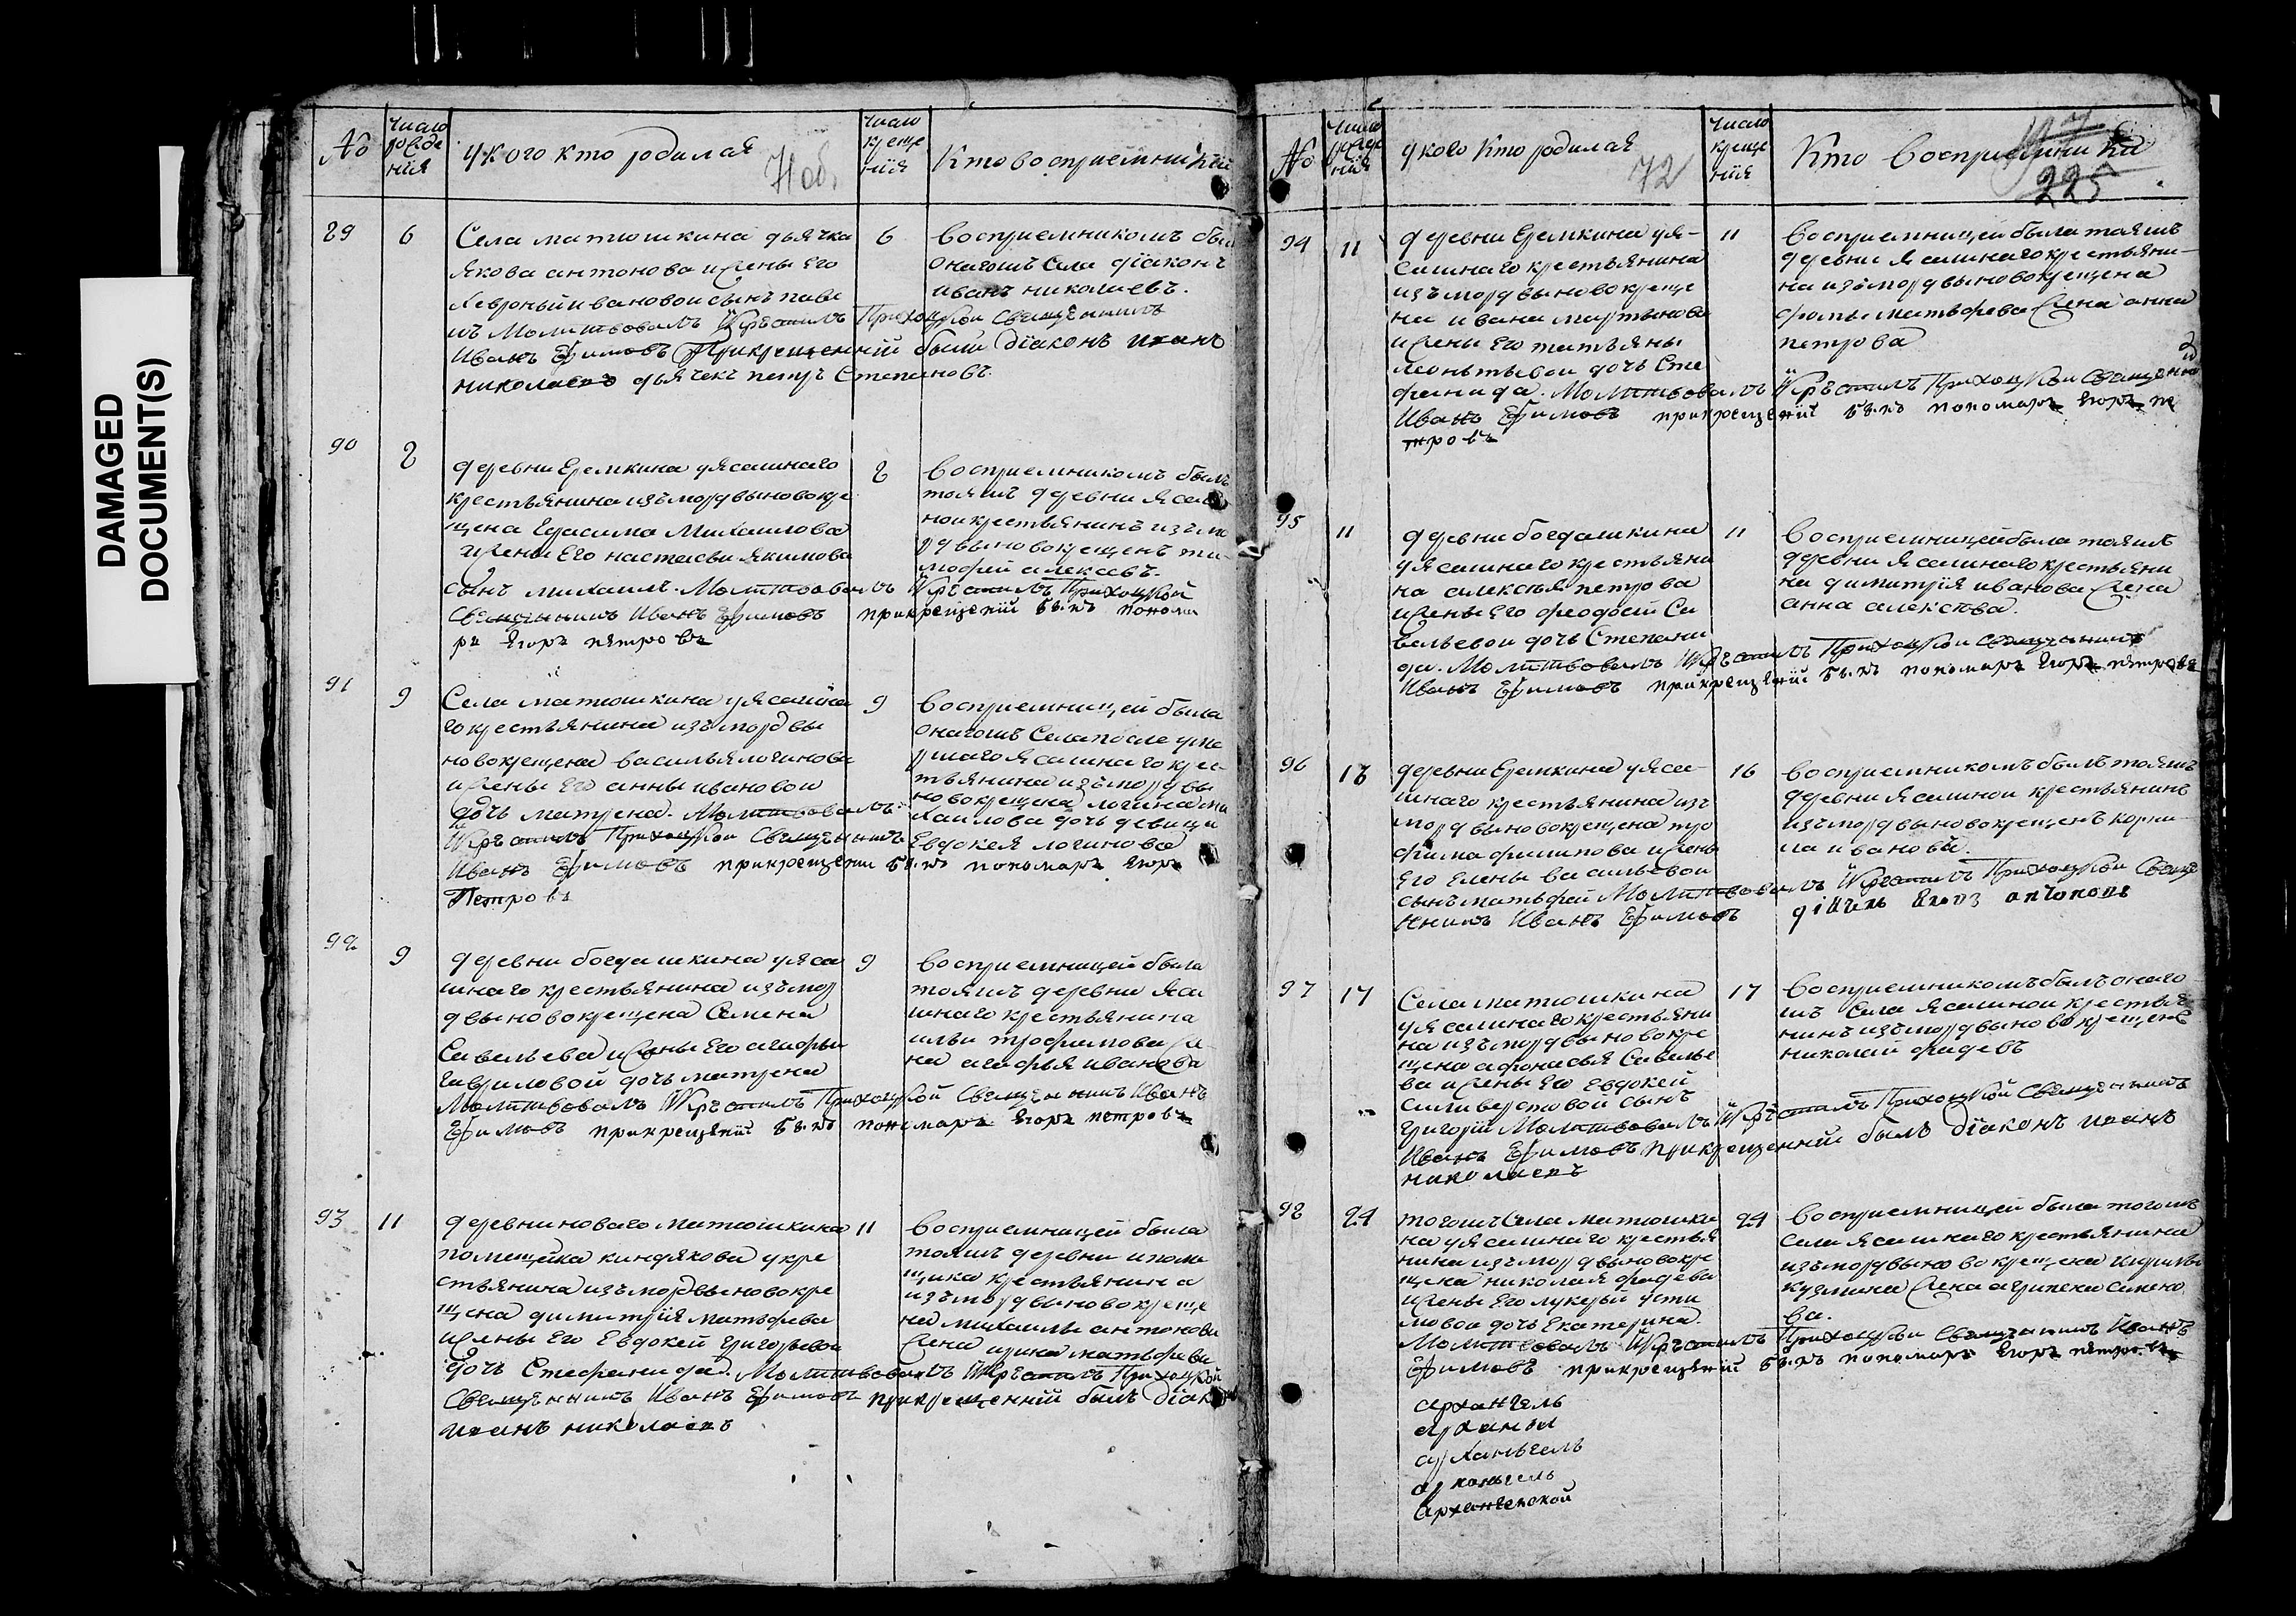 DAMAGED
DOCUMENT(S)
№
число рожде ния
у кого кто родился
71 об.
число креще нiя
Кто восприемники
89
6
Села матюшкина дьячка
Якова антонова ижены Его
хевроньи ивановои сынъ паве
лъ Молитвовалъ Икрѣстилъ Приходской Священникъ
Иванъ Ефимовъ Прикрещенiй были дїаконъ иванъ
николаевъ дьячекъ петръ Степановъ.
6
восприемникомъ был
оногожъ Села дїаконъ
иванъ николаевъ.
90
8
деревни Еремкина уясашнаго
крестьянина изъмордвыновокре
щена Герасима Михаилова
ижены Его настасьи якимова
сынъ михаилъ. Молитвовалъ Икрѣстилъ Приходской
Священникъ Иванъ Ефимовъ прикрещенiи былъ понома
рь Егоръ петровъ
8
восприемникомъ былъ
тояжъ деревни ясаш
нои крестьянинъ изъмо
рдвыновокрещенъ ти
мофей алексеевъ.
91
9
Села матюшкина уясашна
гокрестьянина изъмордвы
новокрещена василья логинова
ижены Его анны ивановои
дочь матрена. Молитвовалъ
Икрѣстилъ Приходской Священникъ
Иванъ Ефимовъ прикрещенiи былъ пономарь Егоръ
Петровъ
9
восприемницей была
оногожъ Села после уме
ршаго ясашнаго крес
тьянина изъмордвы
новокрещена логина ми
хаилова дочь девица
Евдокея логинова
92
9
деревни богдашкина уяса
шнаго крестьянина изъмор
двыновокрещена Семена
Савельева ижены Его агафьи
Гавриловой дочь матрена
Молитвовалъ Икрѣстилъ Приходской Священникъ Иванъ
Ефимовъ прикрещенiи былъ пономарь Егоръ петровъ
9
восприемницей была
тояжъ деревни яса
шнаго крестьянина
ильи трофимова же
на агафья иванова
93
11
деревни новаго матюшкина
помещика киндякова укре
стьянина изъмордвыновокре
щена димитрїя матвѣева
ижены Его Евдокеи григорьевои
дочь Стефанида. Молитвовалъ Икрѣстилъ Приходской
Священникъ Иванъ Ефимовъ прикрещенiй былъ дїаконъ
иванъ николаевъ
11
восприемницей была
тояжъ деревни ипоме
щика крестьянина
изъмордвыновокреще
на михаилы антонова
жена ирина матвѣева
№
число рожде нiя
у кого Кто родился
72
число креще нiя
Кто восприемники
225
94
11
деревни Еремкина уя-
сашнаго крестьянина
изъмордвыновокреще
на ивана мартынова
ижены Его татьяны
леонтьевои дочь Сте
фанида. Молитвовалъ Икрѣстилъ Приходской Священникъ
Иванъ Ефимовъ прикрещенiи былъ пономарь Егоръ пе
тровъ
11
восприемницей была тояжъ
деревни ясашнаго крестьяни-
на изъмордвыновокрещена
фомы матвѣева жена анна
петрова
95
11
деревни богдашкина
уясашнаго крестьяни
на алексѣя петрова
ижены Его феодосiи Са
вельевои дочь Степани
да. Молитвовалъ Икрѣстилъ Приходской Священникъ
Иванъ Ефимовъ прикрещенiи былъ пономарь Егоръ петровъ
11
восприемницей была тояжъ
деревни ясашнаго крестьяни
на димитрїя иванова жена
анна алексѣева.
96
16
деревни Еремкина уяса
шнаго крестьянина изъ
мордвыновокрещена тро
фима филипова ижены
Его Елены васильевои
сынъ матвѣей Молитвовалъ Икрѣстилъ Приходской Свяще
нникъ Иванъ Ефимовъ
16
восприемникомъ былъ тояжъ
деревни ясашнои крестьянинъ
изъмордвыновокрещенъ корни
ла ивановъ.
97
17
Села матюшкина
уясашнагокрестьяни
на изъмордвыновокре
щена афонасья Савелье
ва ижены Его Евдокеи
Силиверстовой сынъ
Григорiи Молитвовалъ Икрѣстилъ Приходской Священникъ
Иванъ Ефимовъ прикрещенiи былъ дїаконъ иванъ
николаевъ
17
восприемникомъбылъ оного
жъ Села ясашнои крестья
нинъ изъмордвыновокрещенъ
николай фадѣевъ
98
24
тогожъ Села матюшки
на уясашнаго крестья
нина изъмордвыновокре
щена николая фадева
ижены Его лукерьи усти
мовои дочь Екатерина.
Молитвовалъ Икрѣстилъ Приходской Священникъ Иванъ
Ефимовъ прикрещенiи былъ пономарь Егоръ петровъ
24
восприемницей была тогожъ
села ясашнаго крестьянина
изъмордвыновокрещена
кузмина жена агрипена семено
ва.
архангель
арханы
архангель
арханьгель
Архангелской